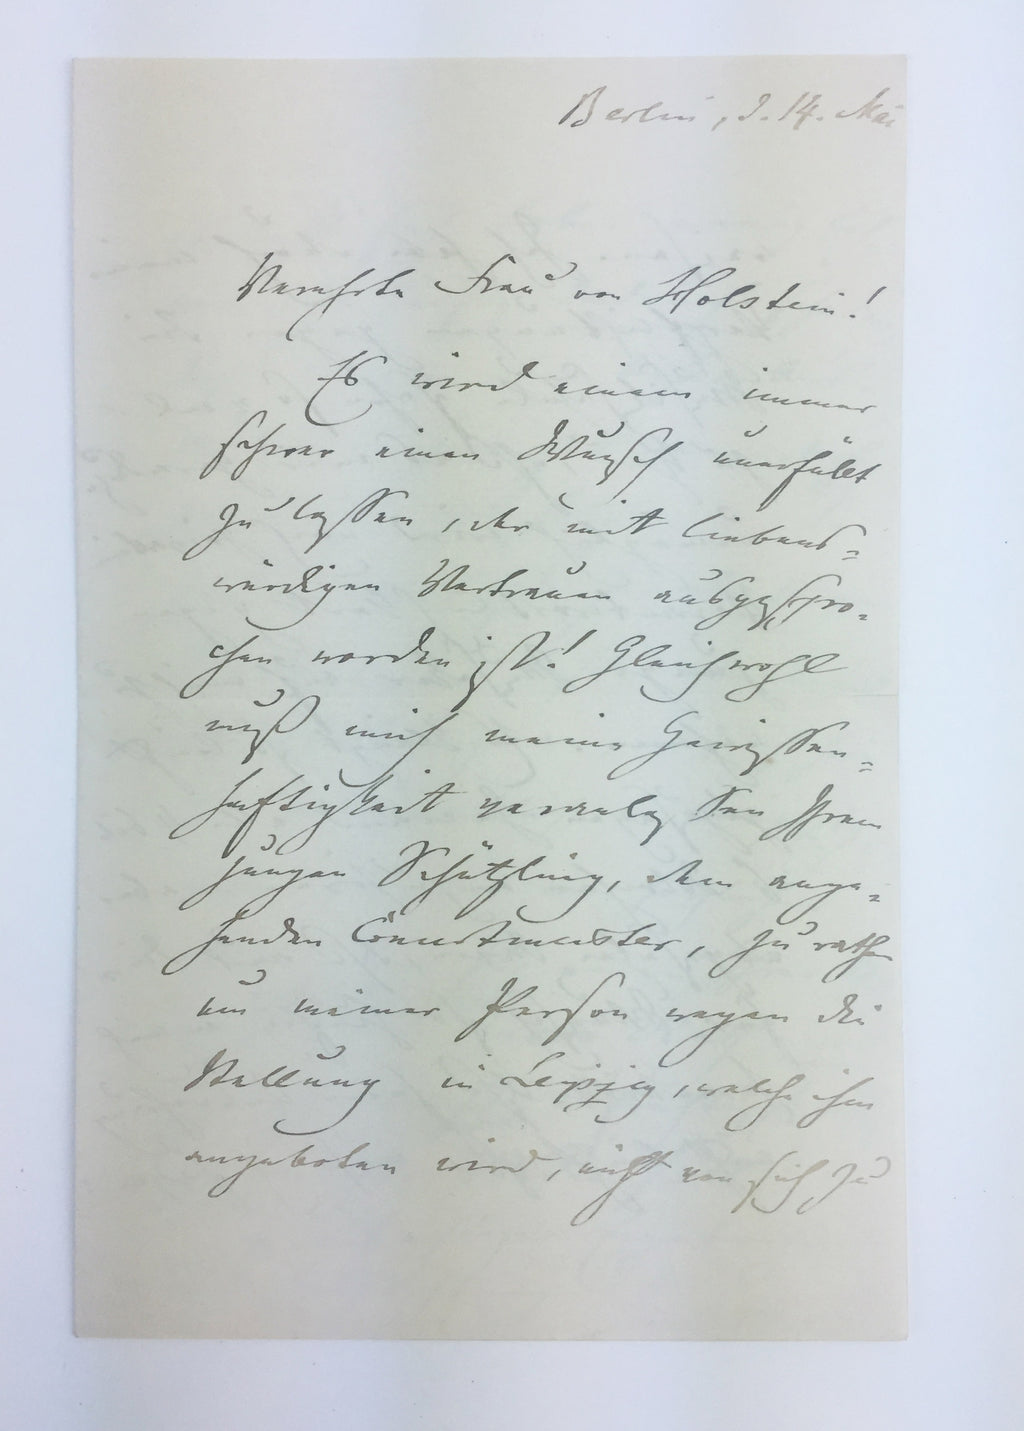 Berlin, d. 14. Mai
Verehrte Frau von Holstein!
Es wird einem immer
schwer einen Wunsch unerfüllt
zu lassen, der mit liebens=
würdigen Vertrauen ausgespro-
chen worden ist! Gleichwohl
muß mich meine Gewissen=
haftigkeit veranlassen Ihrem
jungen Schützling, dem ange=
henden Concertmeister, zu rathen
um meiner Person wegen die
Stellung in Leipzig, welche ihm
angeboten wird, nicht von sich zu